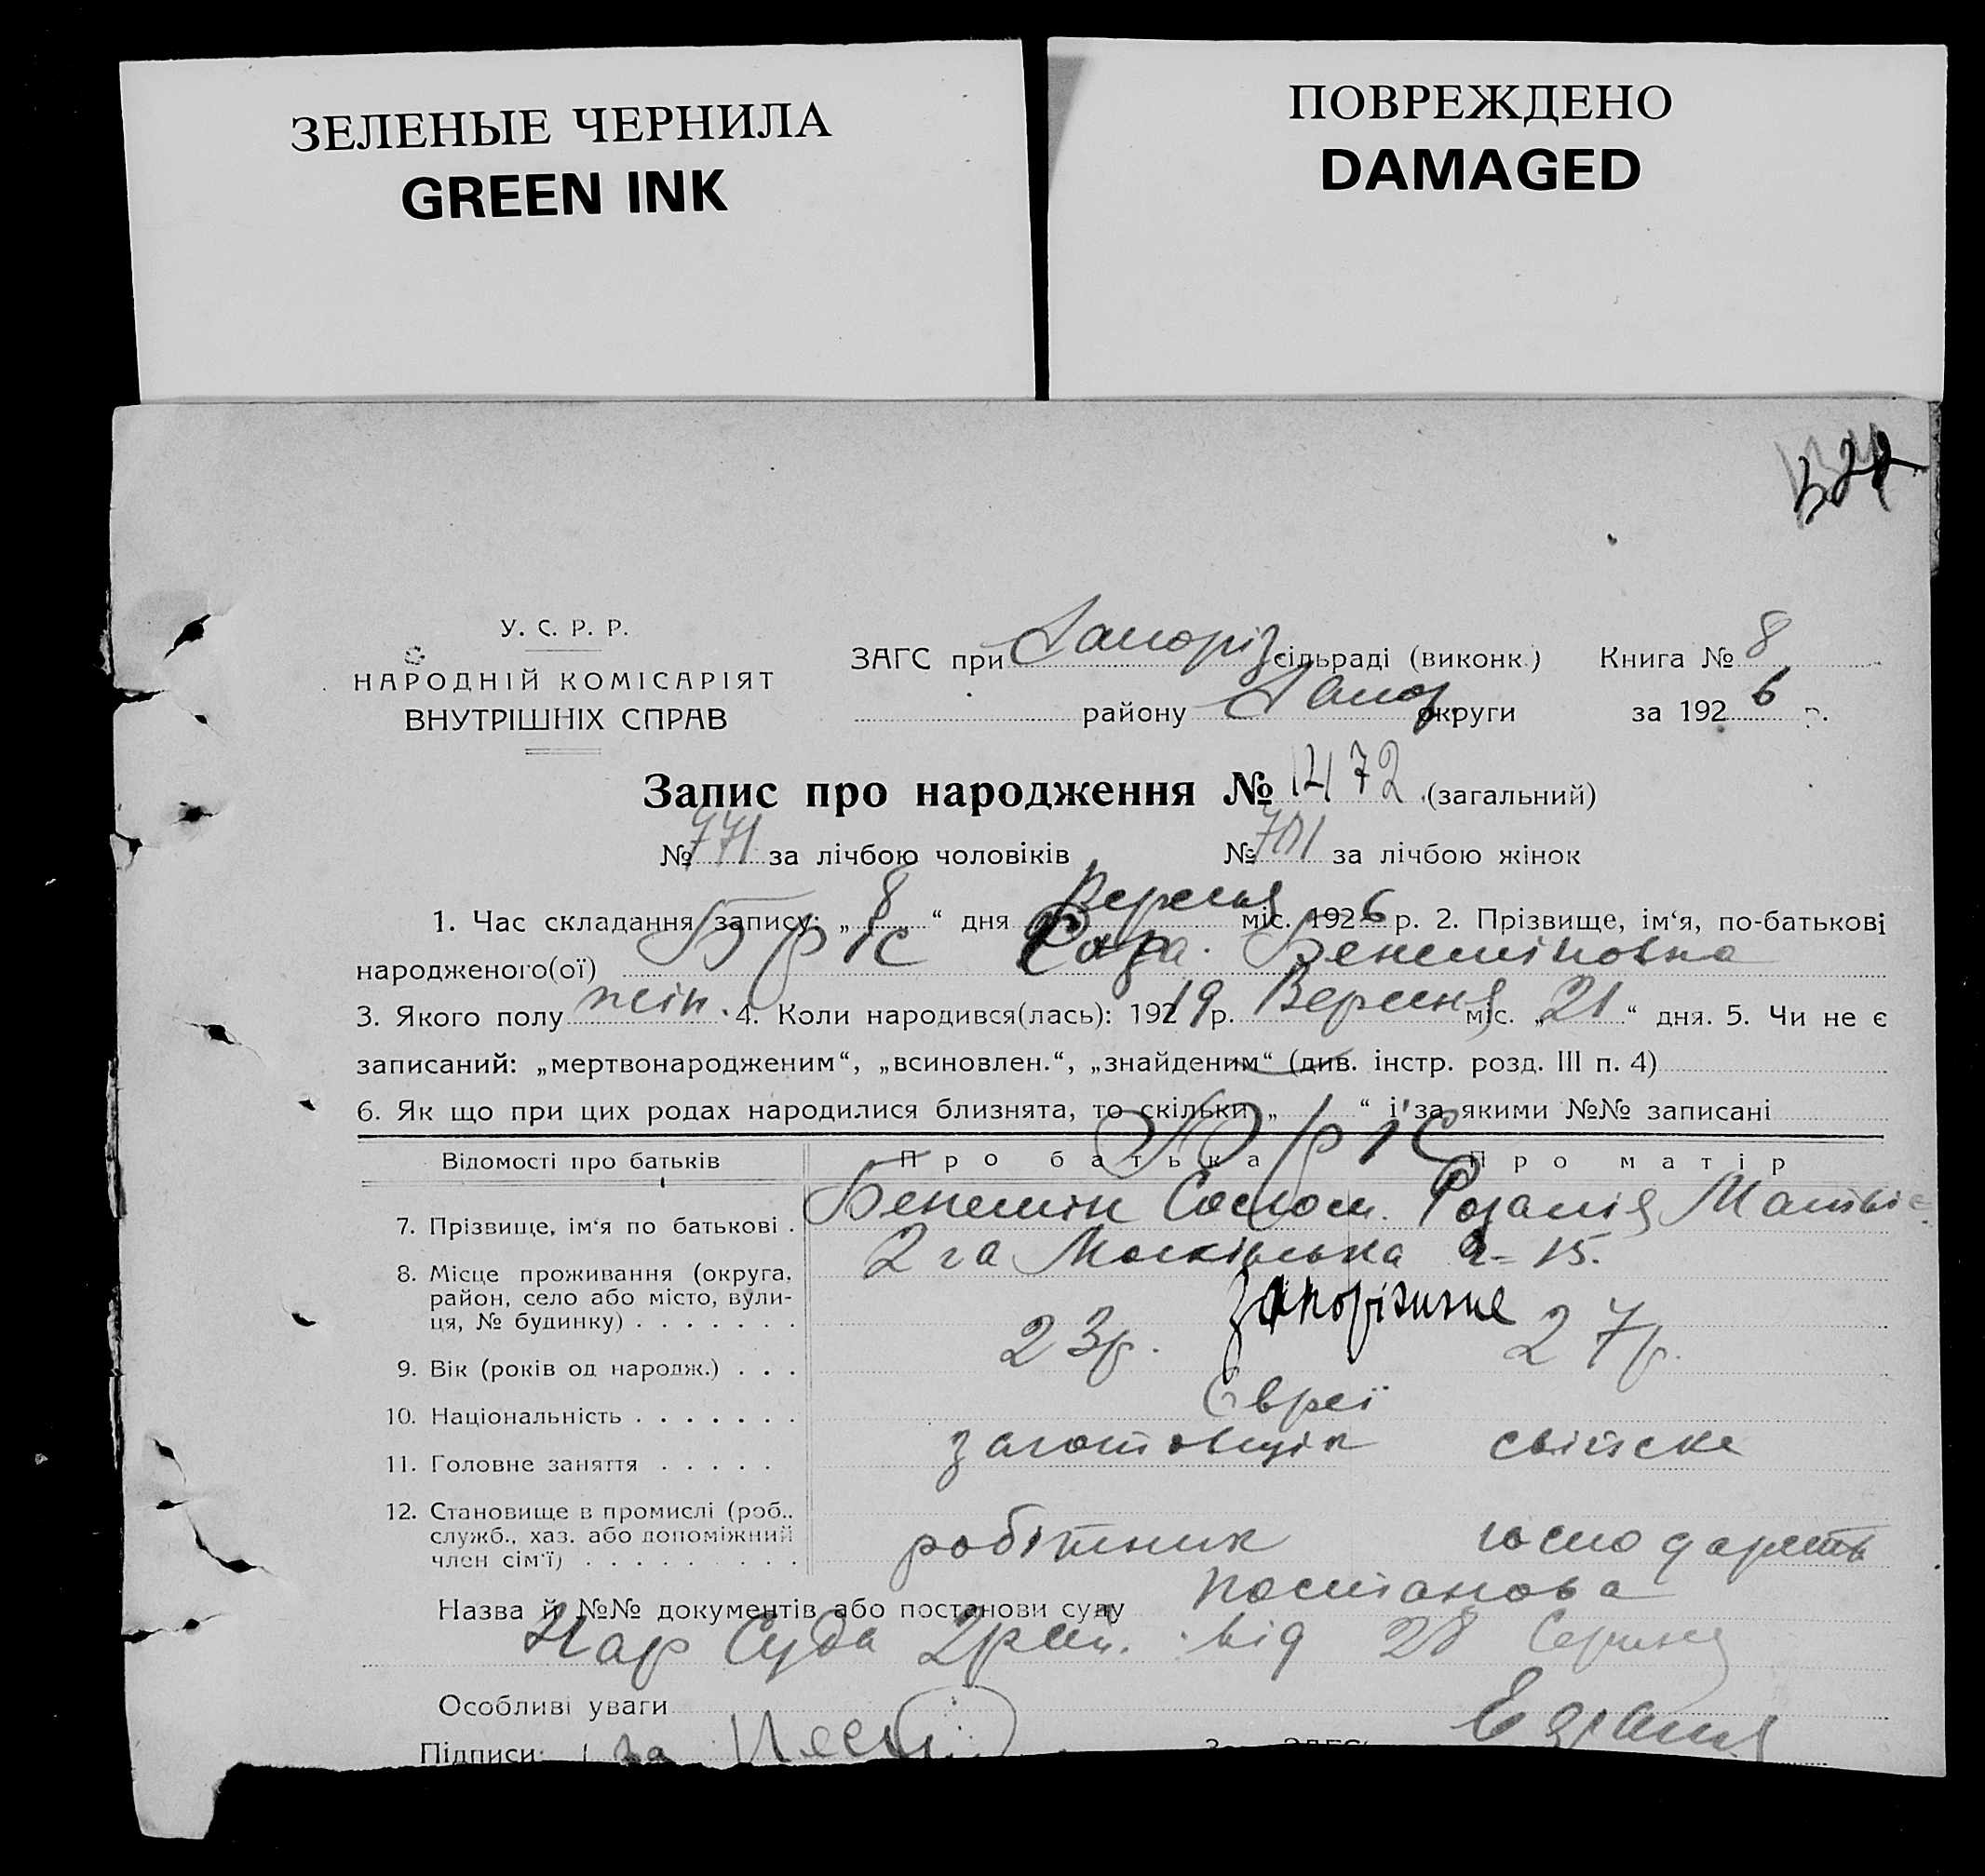 ЗЕЛЕНЫЕ ЧЕРНИЛА
GREEN INK
ПОВРЕЖДЕНО
DAMAGED
У. С. Р. Р.
НАРОДНІЙ КОМІСАРІЯТ
ВНУТРІШНІХ СПРАВ
ЗАГС при Запоріз сільраді (виконк.) Книга № 8
району Запор округи за 1926 р.
Запис про народження № 1472 (загальний)
№ 771 за лічбою чоловіків № 701 за лічбою жінок
1. Час складання запису: „8“ дня Вересня міс. 1926 р. 2. Прізвище, ім‘я, по-батькові
народженого(ої) Бріс Бенеміновна
3. Якого полу жін. 4. Коли народився(лась): 19219 р. Вересня міс. „21“ дня. 5. Чи не є
записаний: „мертвонародженим“, „всиновлен.“, „знайденим“ (див. інстр. розд. III п. 4)
6. Як що при цих родах народилися близнята, то скільки „ “ і за якими №№ записані
Відомості про батьків Про батька Про матір
Бріс
7. Прізвище, ім‘я по батькові . Бенемін Солом. Розалія Матвіє
8. Місце проживання (округа, 2 га 15.
район, село або місто, вули-
ця, № будинку) . . . . . . . Запоріжжє
9. Вік (років од народж.) . . . 23р. 27р.
10. Національність . . . . . . . Євреї
11. Головне заняття . . . . . заготовщік свійске
12. Становище в промислі (роб.,
служб., хаз. або допоміжний
член сім‘ї) . . . . . . . . . робітник господарств
Назва й №№ документів або постанови суду постанова
Нар Суда 2 рай. від 28 Серпня
Особливі уваги
Підписи: за